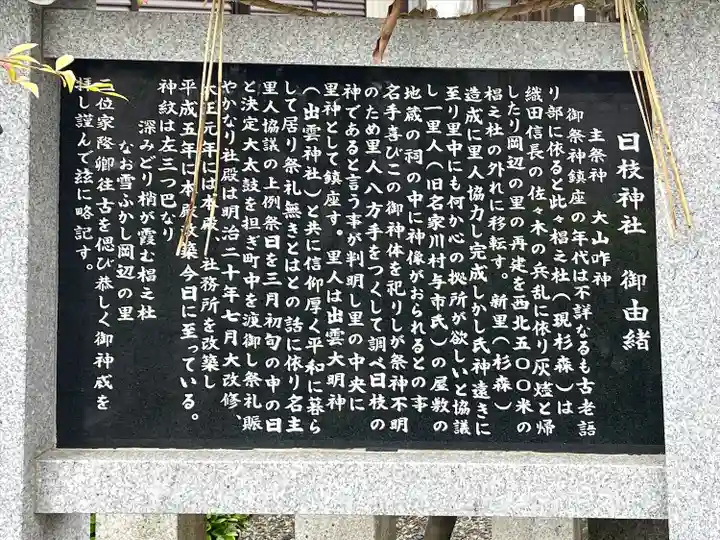 日枝神社 御由緒
主祭神 大山咋神
御祭神鎮座の年代は不詳なるも古老語
り部に依ると此々椙之社(現杉森)は
織田信長の佐々木の兵乱に依り灰燼と帰
したり岡辺の里の再建を西北五〇〇米の
椙之社の外れに移転す。新里(杉森)
造成に里人協力し完成しかし氏神遠きに
至り里中にも何か心の拠所が欲しいと協議
し一里人(旧名家川村与市氏)の屋敷の
地蔵の祠の中に神像がおられるとの事
名手喜びこの御神体を祀りしが祭神不明
のため里人八方手をつくして調べ日枝の
神であると言う事が判明し里の中央に
里神として鎮座す。里人は出雲大明神
(出雲神社)と共に信仰厚く平和に暮ら
して居り祭礼無きとはとの話に依り名主
里人協議の上例祭日を三月初旬の中の日
と決定大太鼓を担ぎ町中を渡御し祭礼賑
やかなり社殿は明治二十年七月大改修、
大正元年には本殿、社務所を改築し
平成五年に本殿改築今日に至っている。
神紋は左三つ巴なり
深みどり梢が霞む椙之社
なお雪ふかし岡辺の里
三位家隆卿往古を偲び恭しく御神威を
拝し謹んで茲に略記す。